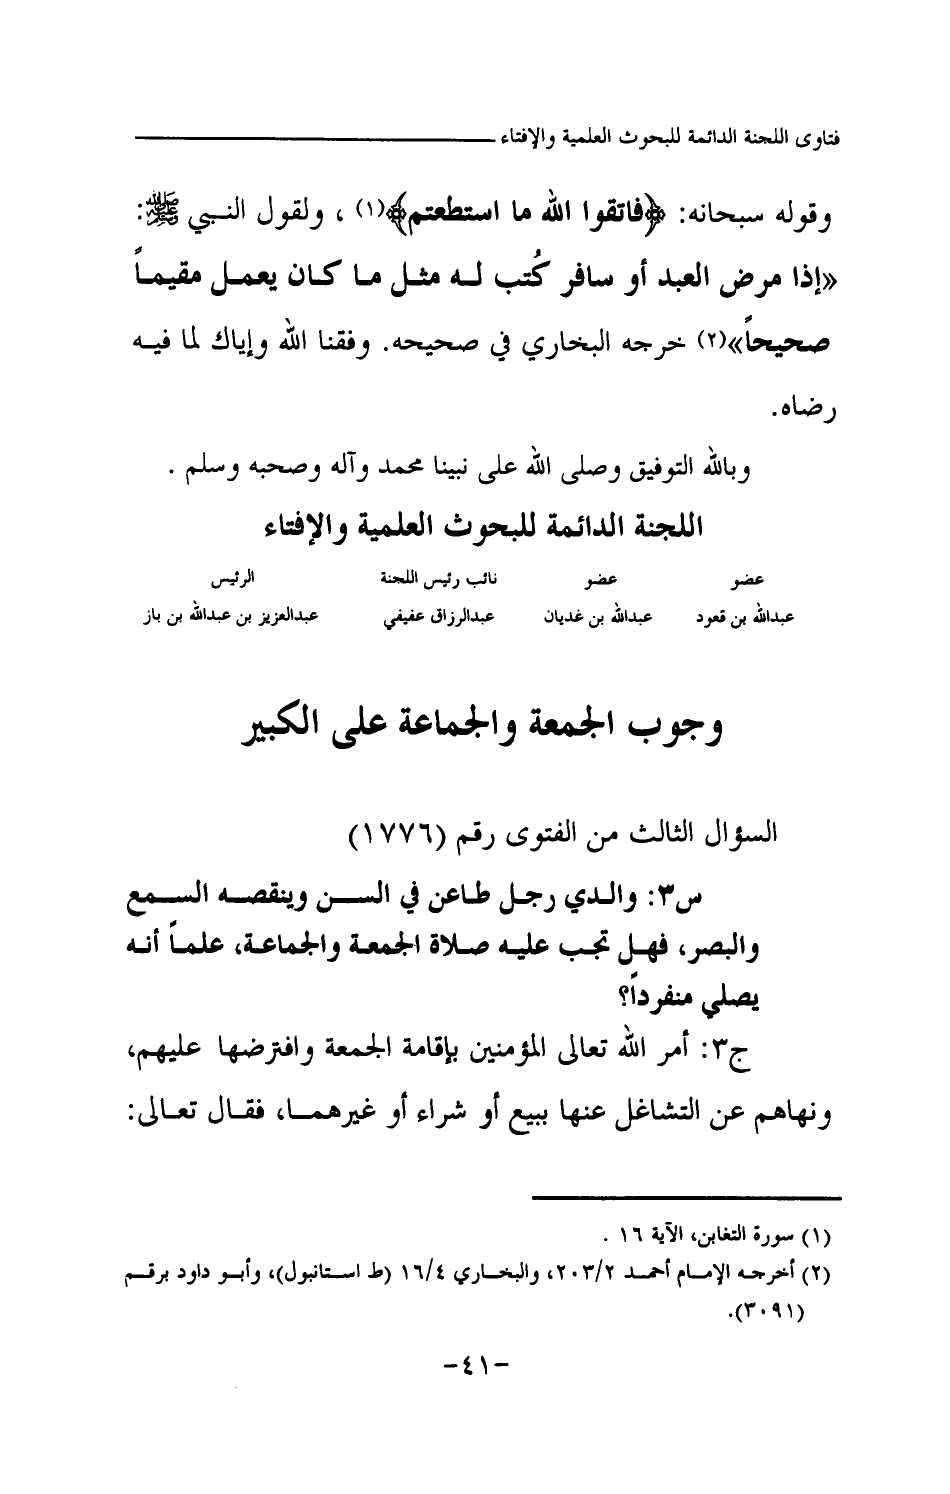 فتاوى اللجنة الدائمة للبحوث العلمية والإفتاء
وقوله سبحانه: ﴿فاتقوا الله ما استطعتم﴾(١) ، ولقول النبي ﷺ:
«إذا مرض العبد أو سافر كُتب له مثل ما كان يعمل مقيماً
صحيحاً»(٢) خرجه البخاري في صحيحه. وفقنا الله وإياك لما فيه
رضاه.
وبالله التوفيق وصلى الله على نبينا محمد وآله وصحبه وسلم .
اللجنة الدائمة للبحوث العلمية والإفتاء
عضو عضو نائب رئيس اللجنة الرئيس
عبدالله بن قعود عبدالله بن غديان عبدالرزاق عفيفي عبدالعزيز بن عبدالله بن باز
وجوب الجمعة والجماعة على الكبير
السؤال الثالث من الفتوى رقم (١٧٧٦)
س٣: والدي رجل طاعن في السن وينقصه السمع
والبصر، فهل تجب عليه صلاة الجمعة والجماعة، علماً أنه
يصلي منفرداً؟
ج٣: أمر الله تعالى المؤمنين بإقامة الجمعة وافترضها عليهم،
ونهاهم عن التشاغل عنها ببيع أو شراء أو غيرهما، فقال تعالى:
(١) سورة التغابن، الآية ١٦ .
(٢) أخرجه الإمام أحمد ٢٠٣/٢، والبخاري ١٦/٤ (ط استانبول)، وأبو داود برقم
(٣٠٩١).
-٤١-